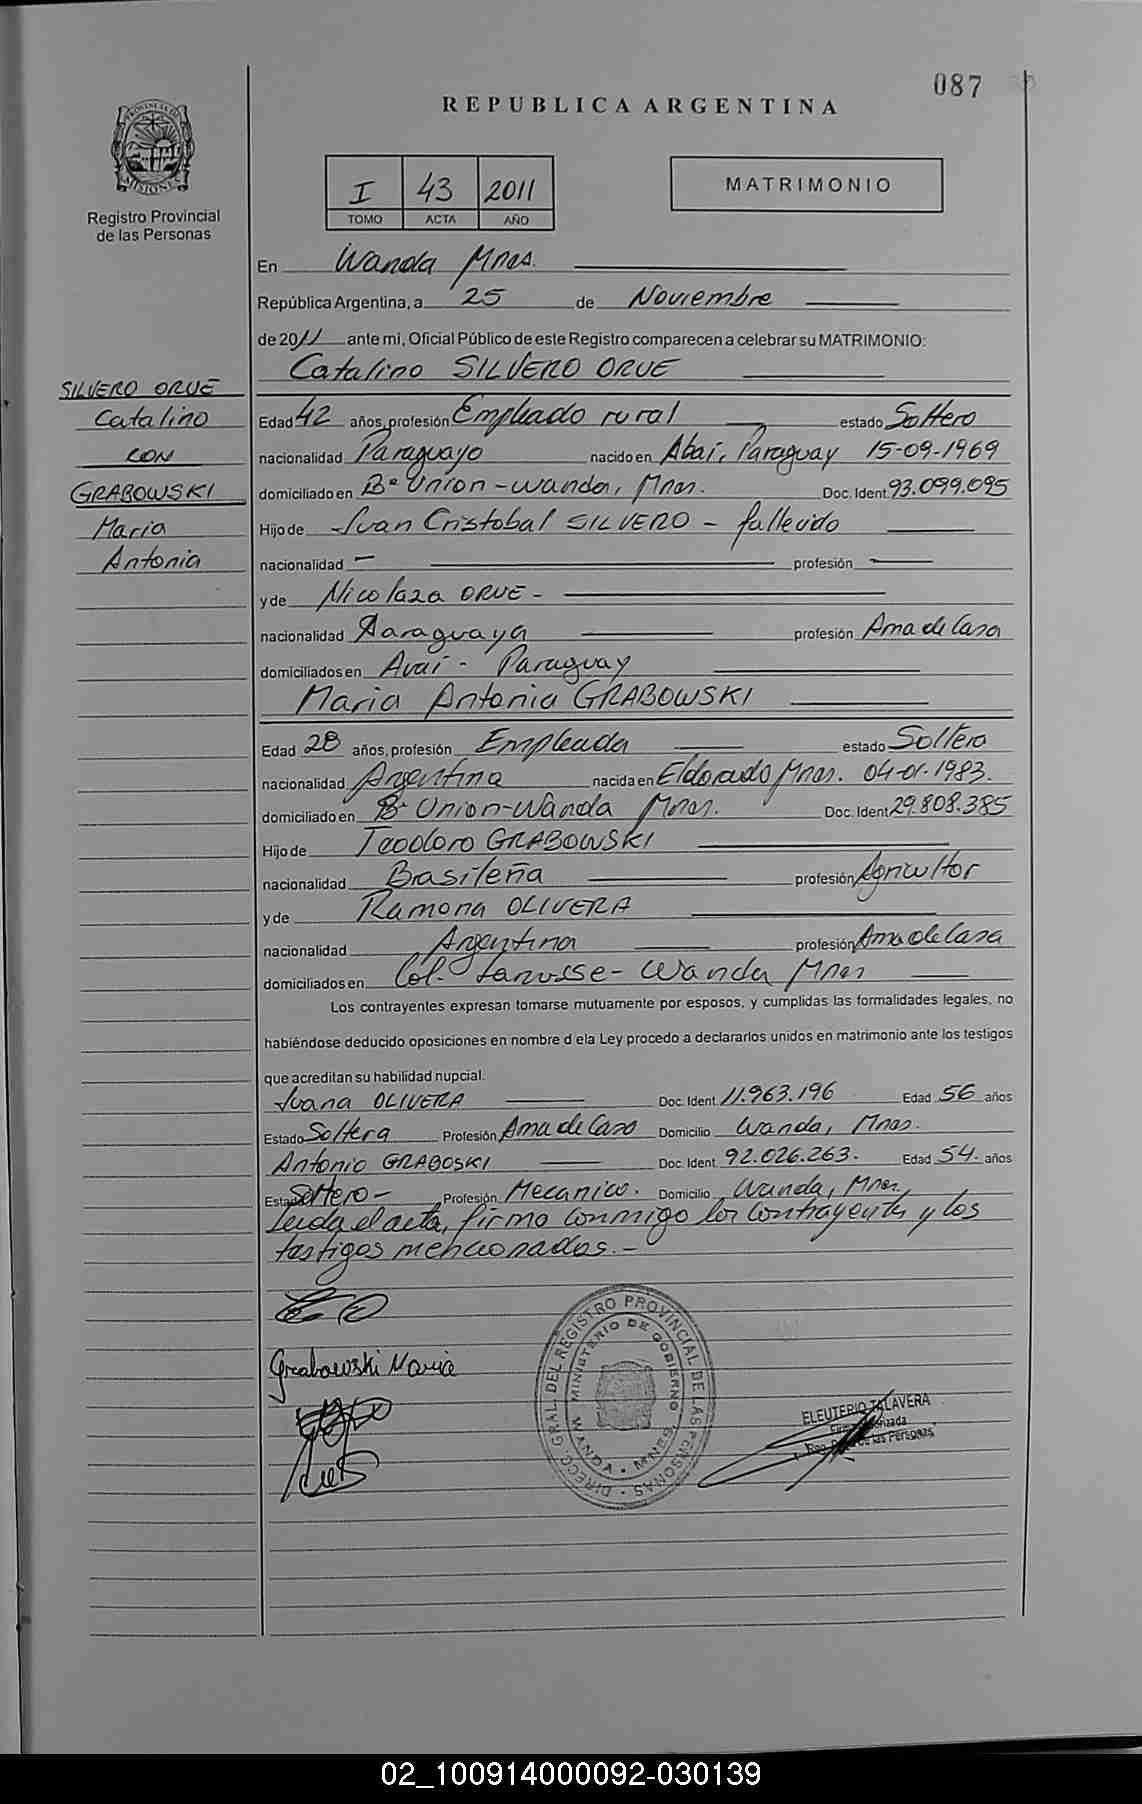 087
REPUBLICA ARGENTINA
PROVINCIA DE MISIONES
Registro Provincial
de las Personas
I 43 2011
TOMO ACTA AÑO
MATRIMONIO
En Wanda Mnes.
República Argentina, a 25 de Noviembre
de 2011 ante mi, Oficial Público de este Registro comparecen a celebrar su MATRIMONIO:
Catalino SILVERO ORUE
SILVERO ORUE
Catalino
CON
GRABOWSKI
Maria
Antonia
Edad 42 años, profesión Empleado rural estado Soltero
nacionalidad Paraguayo nacido en Abai, Paraguay 15-09-1969
domiciliado en Bº Union - Wanda, Mnes. Doc. Ident. 93.099.095
Hijo de Juan Cristobal SILVERO - fallecido
nacionalidad — profesión —
y de Nicolaza ORUE -
nacionalidad Paraguaya profesión Ama de Casa
domiciliados en Avai - Paraguay
Maria Antonia GRABOWSKI
Edad 28 años, profesión Empleada estado Soltera
nacionalidad Argentina nacida en Eldorado Mnes. 04-01-1983.
domiciliado en Bº Union-Wanda Mnes. Doc. Ident 29.808.385
Hijo de Teodoro GRABOWSKI
nacionalidad Brasileña profesión Agricultor
y de Ramona OLIVERA
nacionalidad Argentina profesión Ama de Casa
domiciliados en Col. Lanusse - Wanda Mnes
Los contrayentes expresan tomarse mutuamente por esposos, y cumplidas las formalidades legales, no
habiéndose deducido oposiciones en nombre d ela Ley procedo a declararlos unidos en matrimonio ante los testigos
que acreditan su habilidad nupcial.
Juana OLIVERA Doc. Ident 11.963.196 Edad 56 años
Estado Soltera Profesión Ama de Casa Domicilio Wanda, Mnes.
Antonio GRABOSKI Doc. Ident 92.026.263. Edad 54- años
Estado Soltero - Profesión Mecanico. Domicilio Wanda, Mnes,
Leida el acta, firmo conmigo los contrayentes y los
testigos mencionados. -
Grabowski Maria
DIRECC. GRAL. DEL REGISTRO PROVINCIAL DE LAS PERSONAS
MINISTERIO DE GOBIERNO
WANDA - MNES.
ELEUTERIO TALAVERA
de las Personas
02_100914000092-030139